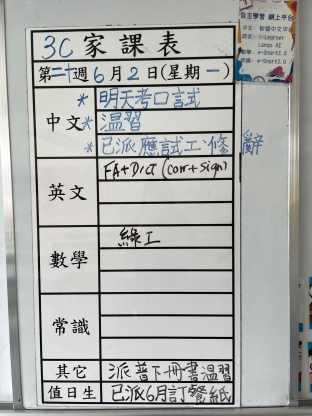 自主學習 網上平台
3C 家課表
第二十週6月2日(星期一)
中文
* 明天考口試
* 溫習
* 已派應試工·修辭
英文
FA+Dict (corr+sign)
數學
綠工
常識
其它
派普下冊書溫習
值日生
已派6月訂餐紙